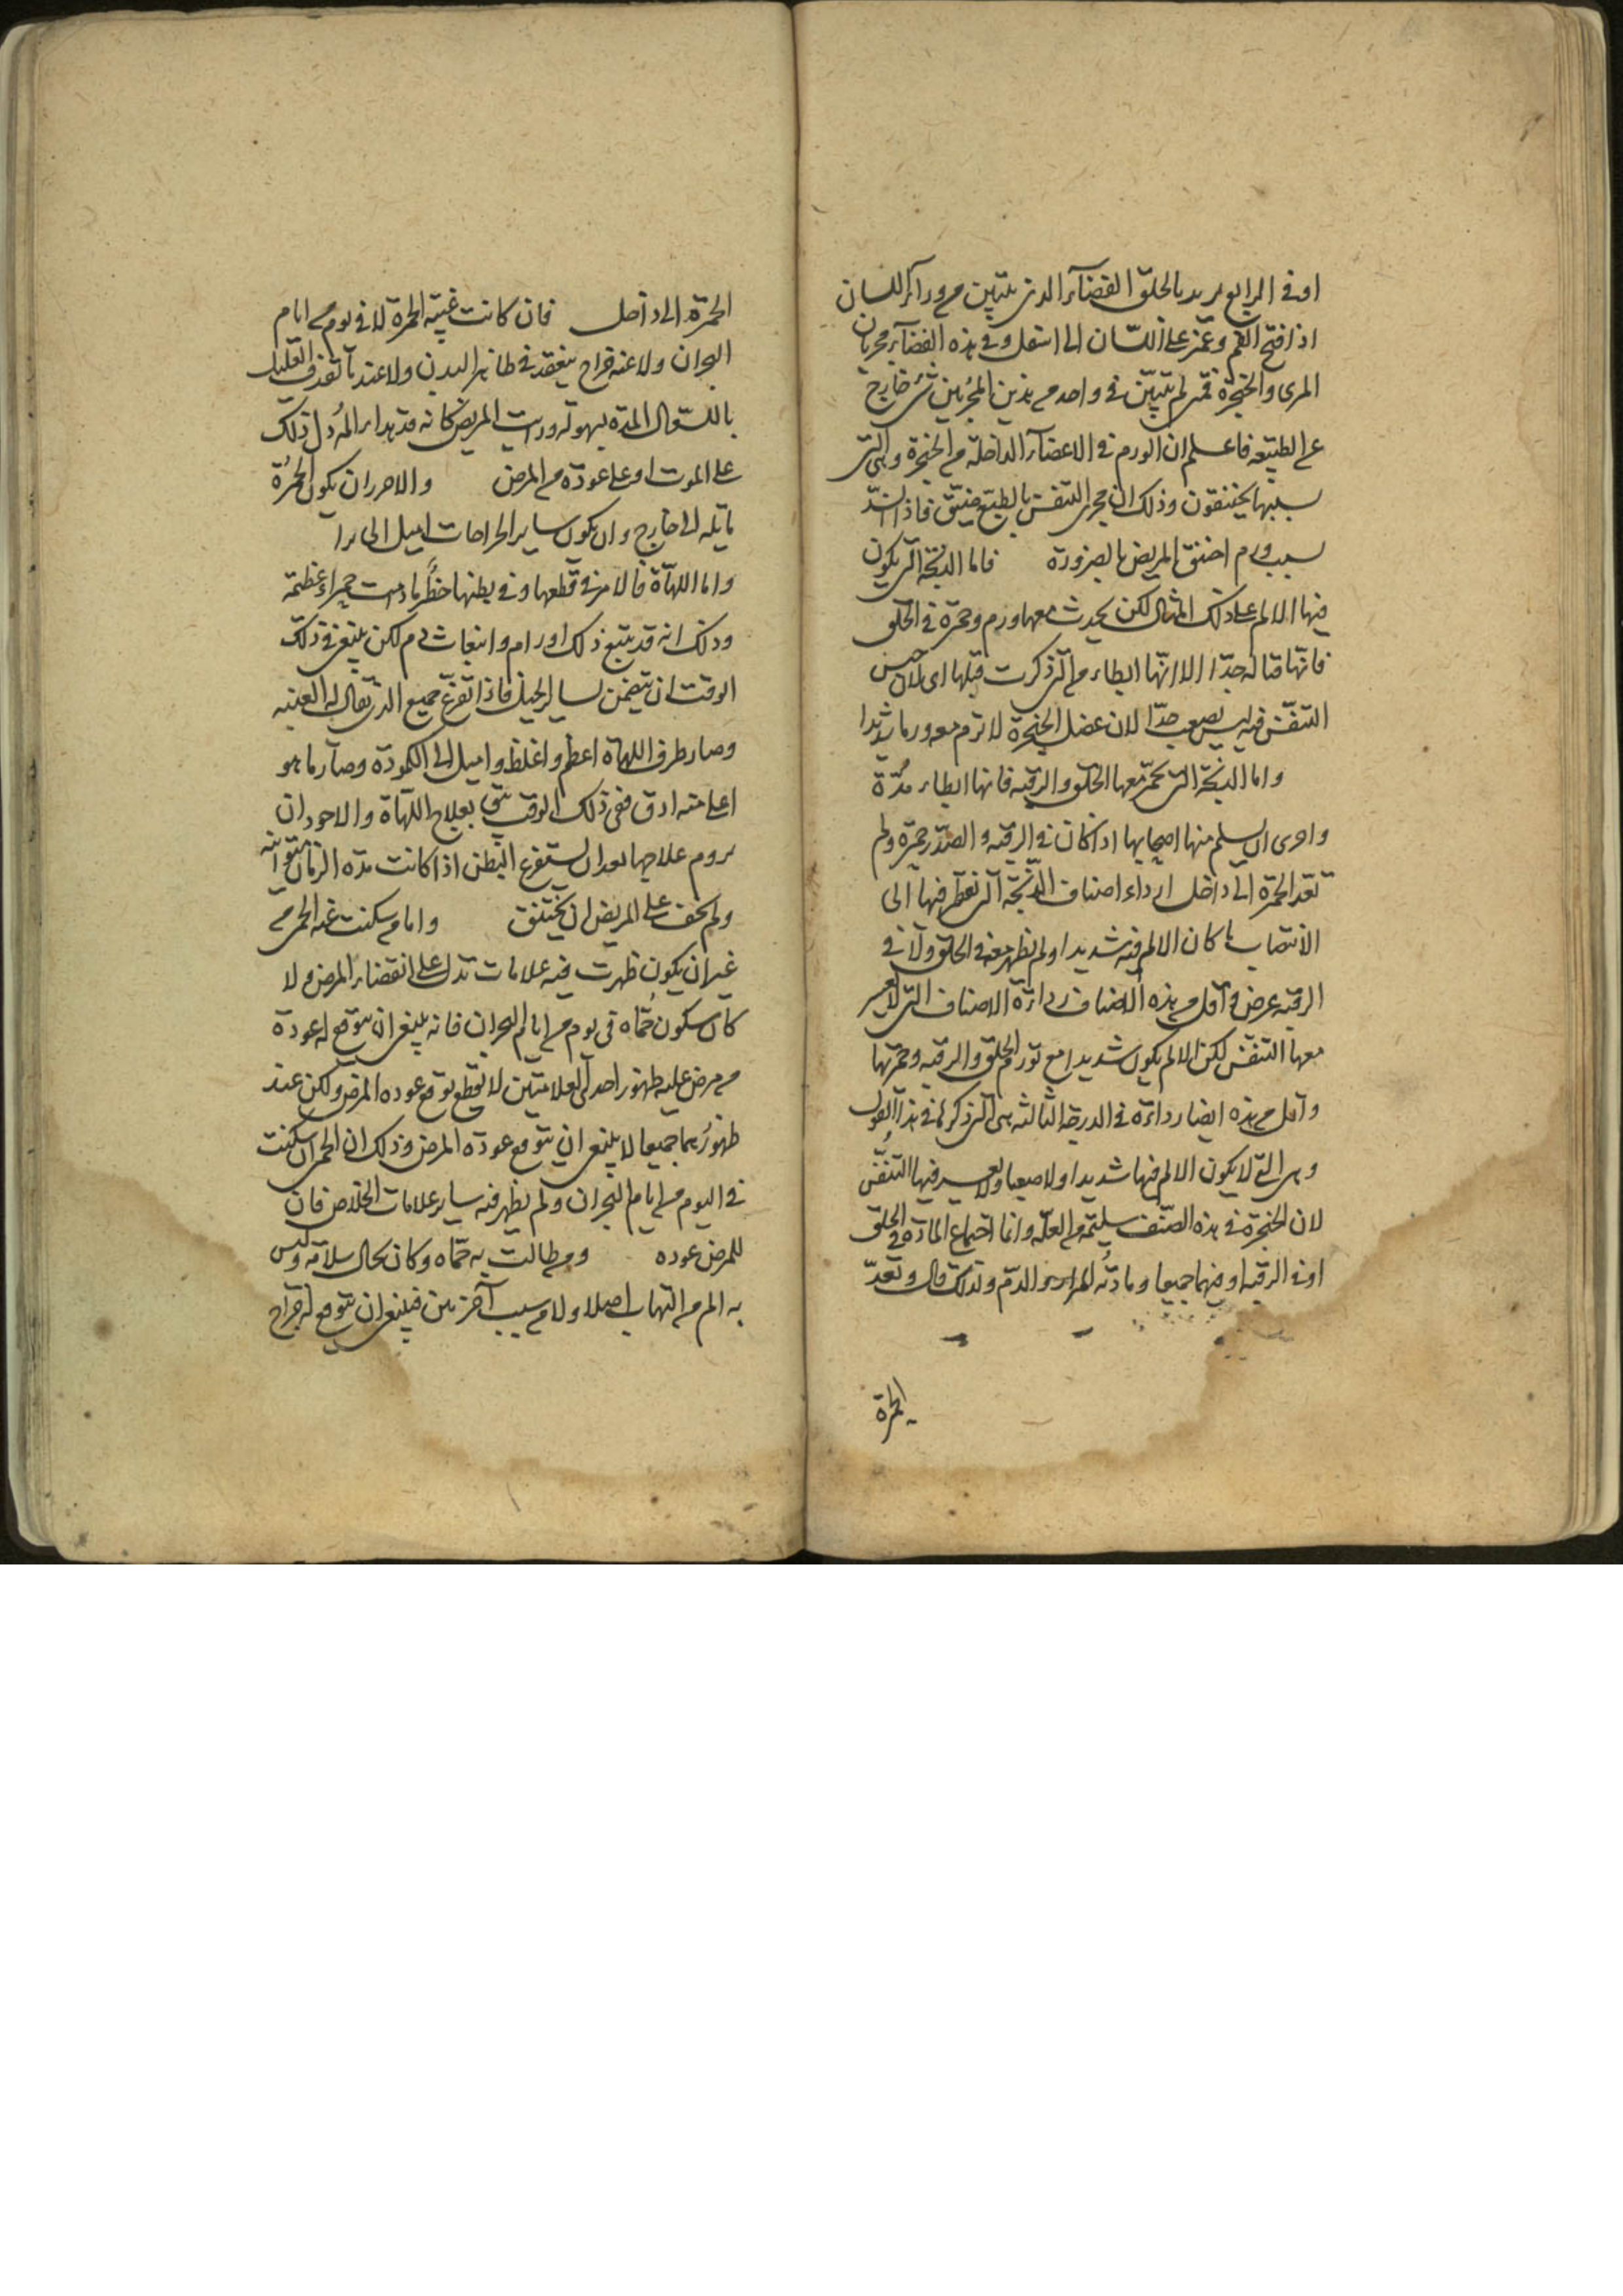 او في الرابع يريد بالحلق الفضاء الذي يتبين من وراء اللسان
اذا فتح الفم وغمز على اللسان الى اسفل وفي هذه الفضاء مجريان
المرى والحنجرة فمتى لم يتبين في واحد من هذين المجريين شئ خارج
عن الطبيعه فاعلم ان الورم في الاعضاء الداخلة من الحنجرة وهي التي
بسببها يختنقون وذلك ان مجرى التنفس بالطبع ضيق فاذا انسد
بسبب ورم اختنق المريض بالضرورة فاما الذبحة التي يكون
فيها الالم على ذلك المثال لكن يحدث معها ورم وحمرة في الحلق
فانها قتاله جدا الا انها ابطاء من التي ذكرت قبلها اى لان حس
التنفس فيه ليس يصعب جدا لان عضل الحنجرة لا ترم معه ورما شديدا
واما الذبحة التي تحمر معها الحلق والرقبه فانها ابطاء مدة
واحرى ان يسلم منها اصحابها اذا كان في الرقبه و الصدر حمرة ولم
تعد الحمرة الى داخل ارداء اصناف الذبحة التي تضطر فيها الى
الانتصاب ما كان الالم فيه شديدا ولم يظهر معه في الحلق ولا في
الرقبه عرض واقل من هذه الاصناف رداءة الاصناف التي لا يعسر
معها التنفس لكن الالم يكون شديدا مع تورم الحلق والرقبه وحمرتها
واقل من هذه ايضا رداءة في الدرجة الثالثه هى التي ذكر في هذا القول
وهى التي لا يكون الالم فيها شديدا ولا صعبا ولا يعسر فيها التنفس
لان الحنجرة في هذه الصنف سليمة من العلة وانما اجتماع المادة في الحلق
او في الرقبه او فيهما جميعا ومادته المرار والدم ولذلك قال وتعد
الحمرة
الحمرة الى داخل فان كانت غيبة الحمرة لا في يوم من ايام
البحران ولا عند خراج ينعقد في ظاهر البدن ولا عند ما تقذف العليل
بالسعال المدة بسهولة ورايت المريض كانه قد هدا المه دل ذلك
على الموت او على عودة من المرض والاحرى ان يكون الحمرة
مايلة الى خارج وان يكون ساير الخراجات اميل الى برا
واما اللهاة فالامر في قطعها وفي بطها خطر ما دامت حمراء عظيمة
وذلك انه قد يتبع ذلك اورام وانبعاث دم لكن ينبغي في ذلك
الوقت ان يتضمن بساير الحيل فاذا تفرغ جميع الذي يقال له العنبه
وصار طرف اللهاة اعظم واغلظ واميل الى الكمودة وصار ما هو
اعلى منه ادق ففي ذلك الوقت ثق بعلاج اللهاة والاجود ان
يروم علاجها بعد ان يستفرغ البطن اذا كانت مدة الزمان متوانيه
ولم يخف على المريض ان يختنق واما من سكنت عنه الحمى من
غير ان يكون ظهرت فيه علامات تدل على انقضاء المرض ولا
كان سكون حماه في يوم من ايام البحران فانه ينبغي ان يتوقع له عودة
من مرض عليه ظهور احدى العلامتين لا يقطع توقع عوده المرض ولكن عند
ظهورهما جميعا لا ينبغي ان يتوقع عودة المرض وذلك ان الحمى ان سكنت
في اليوم من ايام البحران ولم يظهر فيه ساير علامات الخلاص فان
للمرض عوده ومن طالت به حماه وكان بحال سلامه وليس
به الم من التهاب اصلا ولا من سبب آخر بين فينبغي ان يتوقع له خراج